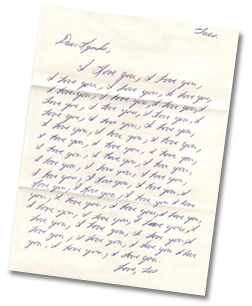 Tues.
Dear Lynda,
I Love you, I love you,
I love you, I love you, I love you,
I love you, I love you, I love you, I
love you, I love you, I love you,
I love you, I love you, I love you,
I love you, I love you, I love you,
I love you, I love you, I love you,
I love you, I love you, I love you,
I love you, I love you, I love you,
I love you, I love you, I love you,
I love you, I love you, I love you, I
love you, I love you, I love you, I love
you, I love you, I love you, I love you,
I love you, I love you, I love you, I
love you, I love you, I love you, I
love you, I love you, I love you I love
you, I love you, I love you.
Love,